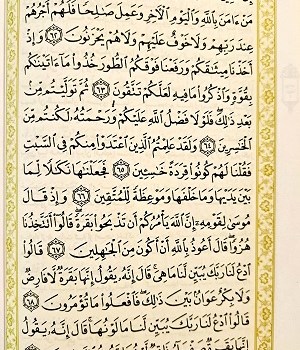 مَنْ ءَامَنَ بِٱللَّهِ وَٱلْيَوْمِ ٱلْءَاخِرِ وَعَمِلَ صَٰلِحًا فَلَهُمْ أَجْرُهُمْ
عِندَ رَبِّهِمْ وَلَا خَوْفٌ عَلَيْهِمْ وَلَا هُمْ يَحْزَنُونَ ٦٢ وَإِذْ
أَخَذْنَا مِيثَٰقَكُمْ وَرَفَعْنَا فَوْقَكُمُ ٱلطُّورَ خُذُوا۟ مَآ ءَاتَيْنَٰكُم
بِقُوَّةٍ وَٱذْكُرُوا۟ مَا فِيهِ لَعَلَّكُمْ تَتَّقُونَ ٦٣ ثُمَّ تَوَلَّيْتُم مِّنۢ
بَعْدِ ذَٰلِكَ ۖ فَلَوْلَا فَضْلُ ٱللَّهِ عَلَيْكُمْ وَرَحْمَتُهُۥ لَكُنتُم مِّنَ
ٱلْخَٰسِرِينَ ٦٤ وَلَقَدْ عَلِمْتُمُ ٱلَّذِينَ ٱعْتَدَوْا۟ مِنكُمْ فِى ٱلسَّبْتِ
فَقُلْنَا لَهُمْ كُونُوا۟ قِرَدَةً خَٰسِـِٔينَ ٦٥ فَجَعَلْنَٰهَا نَكَٰلًا لِّمَا
بَيْنَ يَدَيْهَا وَمَا خَلْفَهَا وَمَوْعِظَةً لِّلْمُتَّقِينَ ٦٦ وَإِذْ قَالَ
مُوسَىٰ لِقَوْمِهِۦٓ إِنَّ ٱللَّهَ يَأْمُرُكُمْ أَن تَذْبَحُوا۟ بَقَرَةً ۖ قَالُوٓا۟ أَتَتَّخِذُنَا
هُزُوًا ۖ قَالَ أَعُوذُ بِٱللَّهِ أَنْ أَكُونَ مِنَ ٱلْجَٰهِلِينَ ٦٧ قَالُوا۟
ٱدْعُ لَنَا رَبَّكَ يُبَيِّن لَّنَا مَا هِىَ ۚ قَالَ إِنَّهُۥ يَقُولُ إِنَّهَا بَقَرَةٌ لَّا فَارِضٌ
وَلَا بِكْرٌ عَوَانٌۢ بَيْنَ ذَٰلِكَ ۖ فَٱفْعَلُوا۟ مَا تُؤْمَرُونَ ٦٨
قَالُوا۟ ٱدْعُ لَنَا رَبَّكَ يُبَيِّن لَّنَا مَا لَوْنُهَا ۚ قَالَ إِنَّهُۥ يَقُولُ
إِنَّهَا بَقَرَةٌ